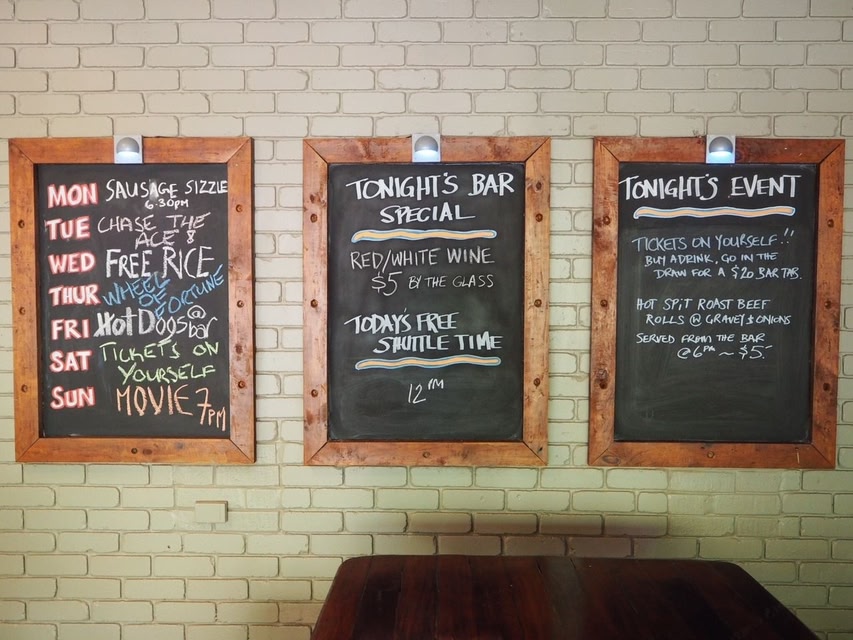 MON SAUSAGE SIZZLE
6.30PM
TUE CHASE THE
ACE 8
WED FREE RICE
THUR WHEEL
OF
FORTUNE
FRI HOT DOGS @
bar
SAT TICKETS ON
YOURSELF
SUN MOVIE 7PM
TONIGHT'S BAR
SPECIAL
RED/WHITE WINE
$5 BY THE GLASS
TODAY'S FREE
SHUTTLE TIME
12PM
TONIGHT'S EVENT
TICKETS ON YOURSELF!!
BUY A DRINK, GO IN THE
DRAW FOR A $20 BAR TAB.
HOT SPIT ROAST BEEF
ROLLS @ GRAVEY & ONIONS
SERVED FROM THE BAR
@ 6PM ~ $5.-